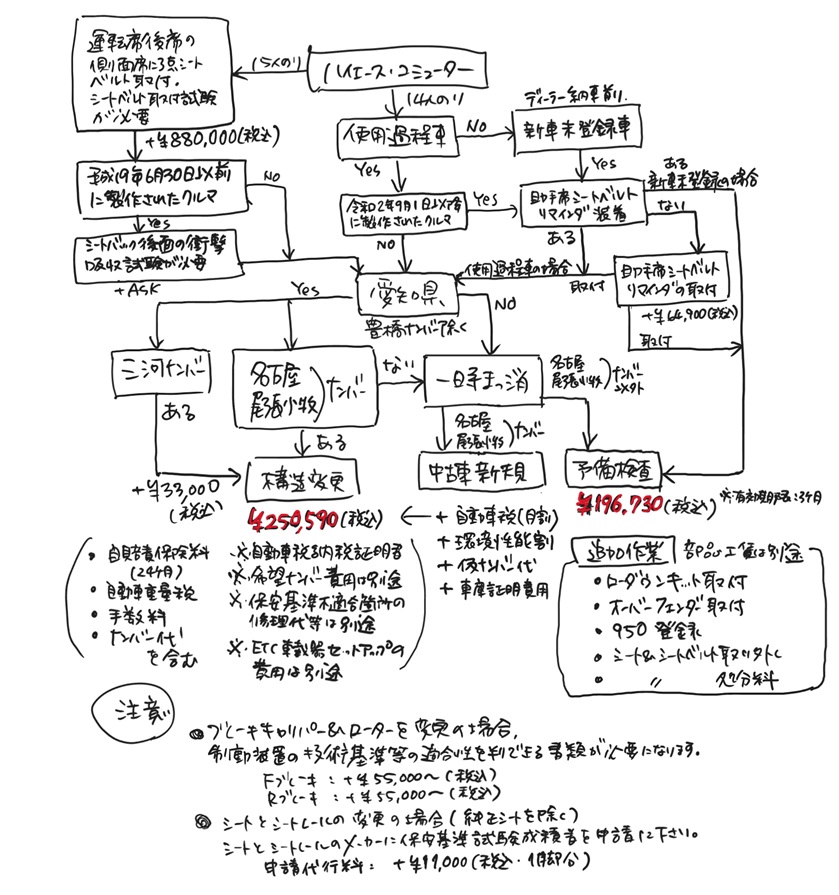 ハイエース・コミューター
15人のり
運転席後席の
側面席に3点シート
ベルト取付.
シートベルト取付試験
が必要
+¥880,000(税込)
平成19年6月30日以前
に製作されたクルマ
NO
Yes
シートバック後面の衝撃
吸収試験が必要
+ASK
14人のり
使用過程車
NO
Yes
ディーラー納車前.
新車未登録車
Yes
令和02年9月1日以降
に製作されたクルマ
Yes
NO
助手席シートベルト
リマインダ装着
ある
新車未登録の場合
ない
ある
使用過程車の場合
取付
助手席シートベルト
リマインダの取付
+¥64,900(税込)
取付
愛知県
豊橋ナンバー除く
Yes
NO
三河ナンバー
ある
名古屋
尾張小牧)ナンバー
ない
ある
一時まっ消
名古屋
尾張小牧)ナンバー
以外
名古屋
尾張小牧)ナンバー
+¥33,000
(税込)
構造変更
中古車新規
予備検査
¥250,590(税込)
¥196,730(税込)
※有効期限:3ヶ月
+ 自動車税(月割)
+ 環境性能割
+ 仮ナンバー代
+ 車庫証明費用
・自賠責保険料
(24ヶ月)
・自動車重量税
・手数料
・ナンバー代
を含む
※自動車税納税証明書
※希望ナンバー費用は別途
※保安基準不適合箇所の
修理代等は別途
※ETC車載器セットアップの
費用は別途
追加作業 部品・工賃は別途
・ローダウンキット取付
・オーバーフェンダ取付
・950登録
・シート&シートベルト取り外し
・ 〃 処分料
注意
◎ブレーキキャリパー&ローターを変更の場合,
制動装置の技術基準等の適合性を判できる書類が必要になります。
Fブレーキ:+¥55,000〜(税込)
Rブレーキ:+¥55,000〜(税込)
◎シートとシートレールの変更の場合(純正シートを除く)
シートとシートレールのメーカーに保安基準試験成績書を申請下さい。
申請代行料: +¥11,000(税込・1脚分)